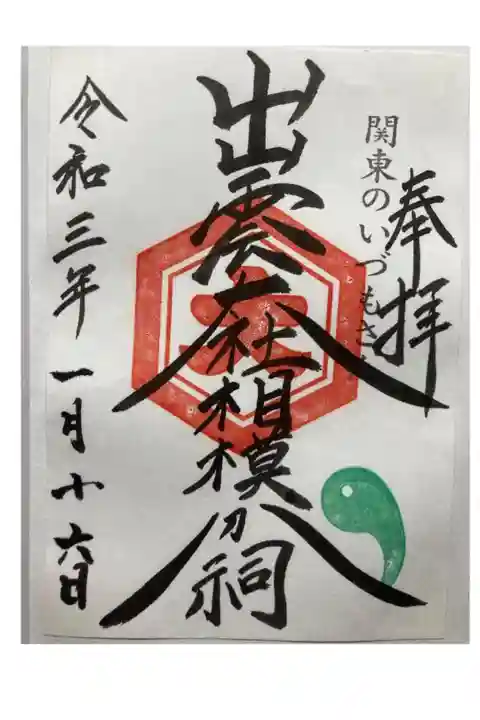 奉拝
関東のいづもさん
出雲大社相模分祠
令和三年一月廿六日